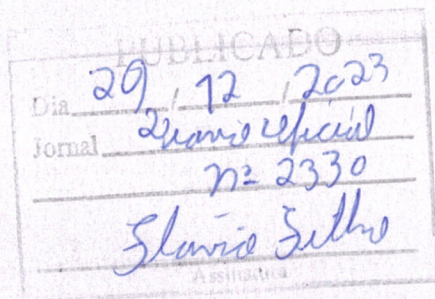 PUBLICADO
Dia 29 / 12 / 2023
Jornal Diario Oficial
nº 2330
Flavio Filho
Assinatura